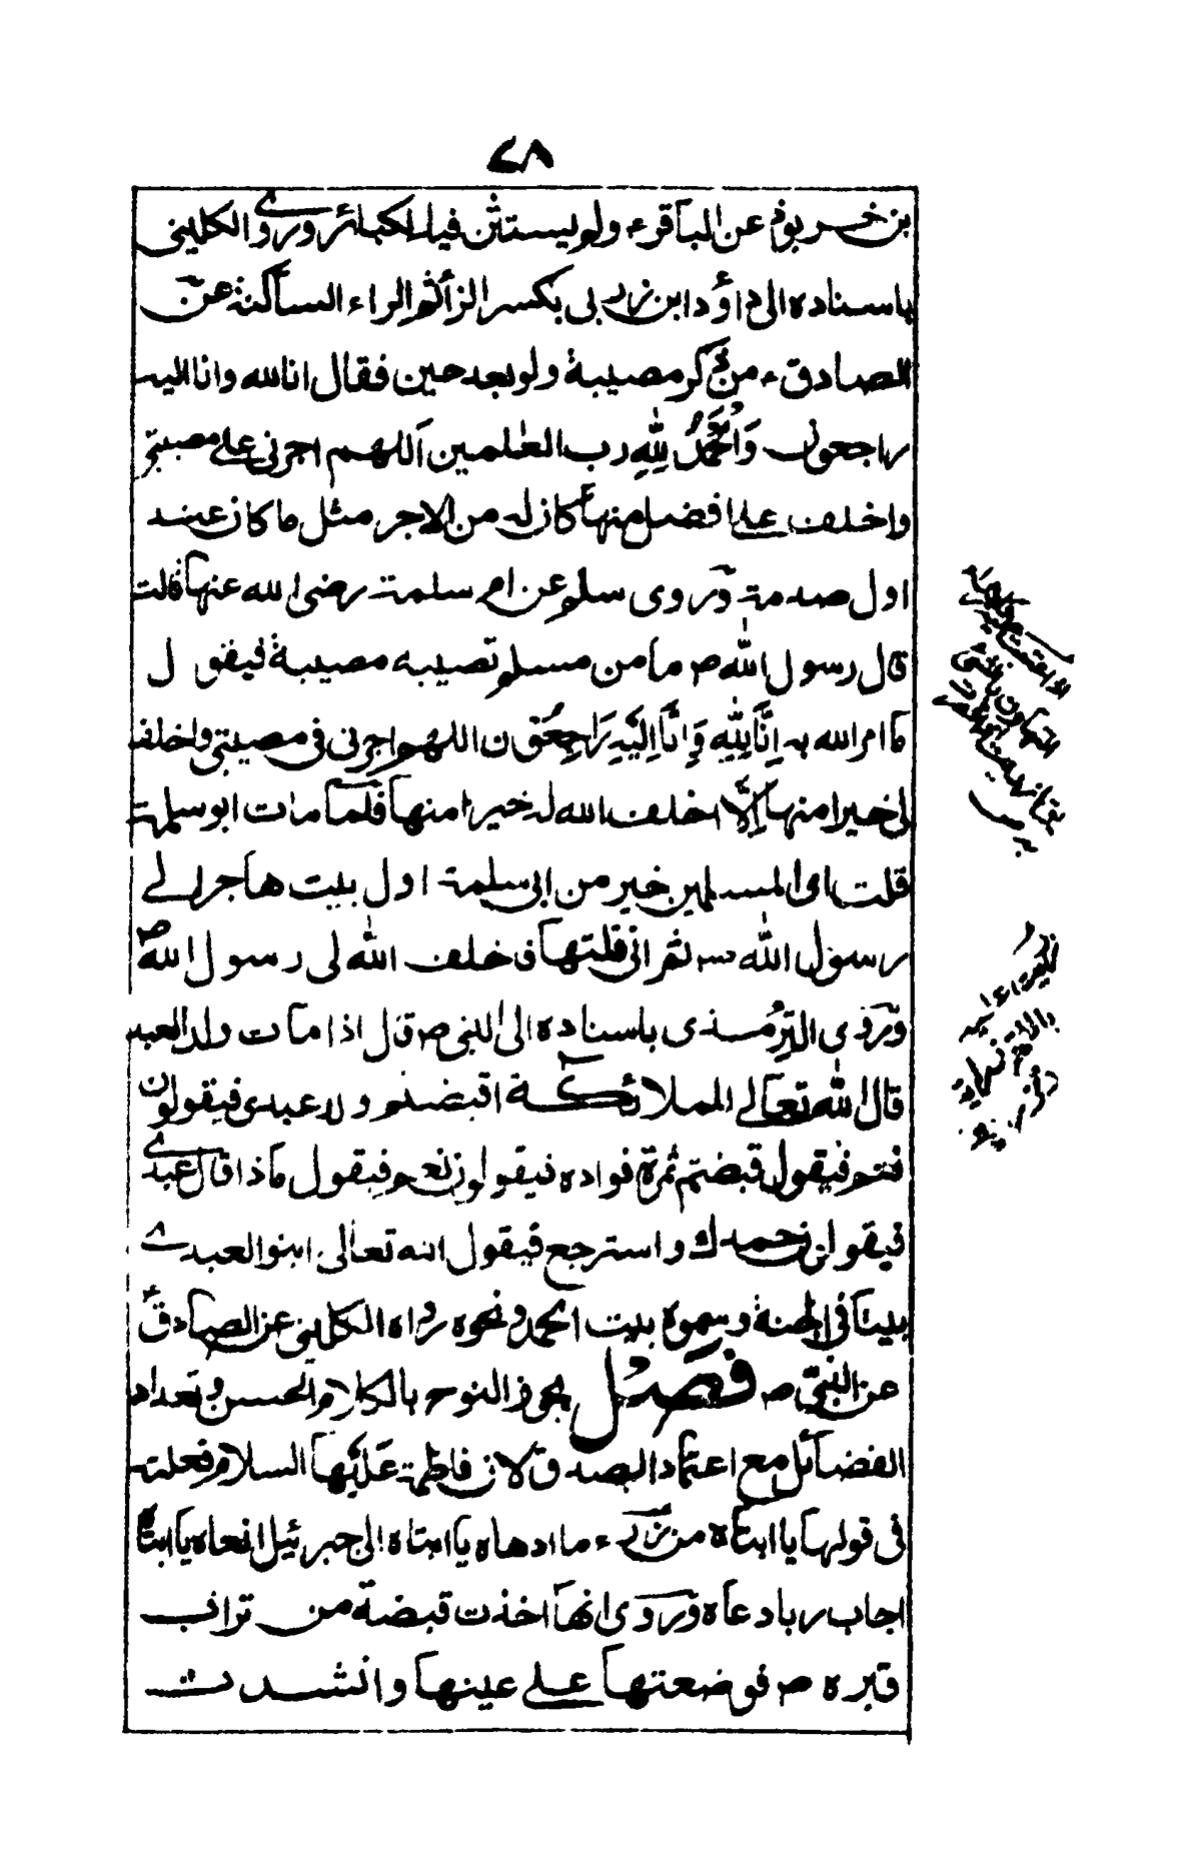 ٧٨
بن خربوذ عن الباقرء ولم يستثن فيه الكبائر وروى الكلينى
باسناده الى داؤد ابن زربى بكسر الزاء ثم الراء الساكنة عن
الصادق ء من ذكر مصيبة ولو بعد حين فقال انا لله وانا اليه
راجعون وَالْحَمْدُ لِلّٰهِ رب العٰلمين اَللهم اجرنى على مصيبتى
واخلف على افضل منها كان له من الاجر مثل ما كان عند
اول صدمة وروى سلم عن ام سلمة رضى الله عنها قالت
قال رسول الله ص ما من مسلم تصيبه مصيبة فيقول
ما امر الله به اِنَّا لِلّٰهِ وَاِنَّا اِلَيْهِ رَاجِعُوْن اللهم اجرنى فى مصيبتى واخلف
لى خيرا منها اِلَّا اخلف الله له خيرا منها فلما مات ابو سلمة
قلت اى المسلمين خير من ابى سلمة اول بيت هاجر الے
رسول الله ص ثم انى قلتها فاخلف الله لى رسول الله ص
وروى الترمذى باسناده الى النبى ص قال اذا مات ولد العبد
قال الله تعالے الملائكة اقبضتم ولد عبدى فيقولون
نعم فيقول قبضتم ثمرة فواده فيقولون نعم فيقول ماذا قال عبدے
فيقولون حمدك واسترجع فيقول الله تعالى ابنوا لعبدے
بيتا فى الجنة وسموه بيت الحمد ونحوه رواه الكلينى عن الصادق ء
عن النبى ص فصل يجوز النوح بالكلام الحسن وتعداد
الفضائل مع اعتماد الصدق لان فاطمة عَلَيْها السلام فعلته
فى قولها يا ابتاه من ربه ء ما ادناه يا ابتاه الى جبرئيل انعاه يا ابتاه
اجاب ربا دعاه وروى انها اخذت قبضة من تراب
قبره ص فوضعتها على عينها وانشدت